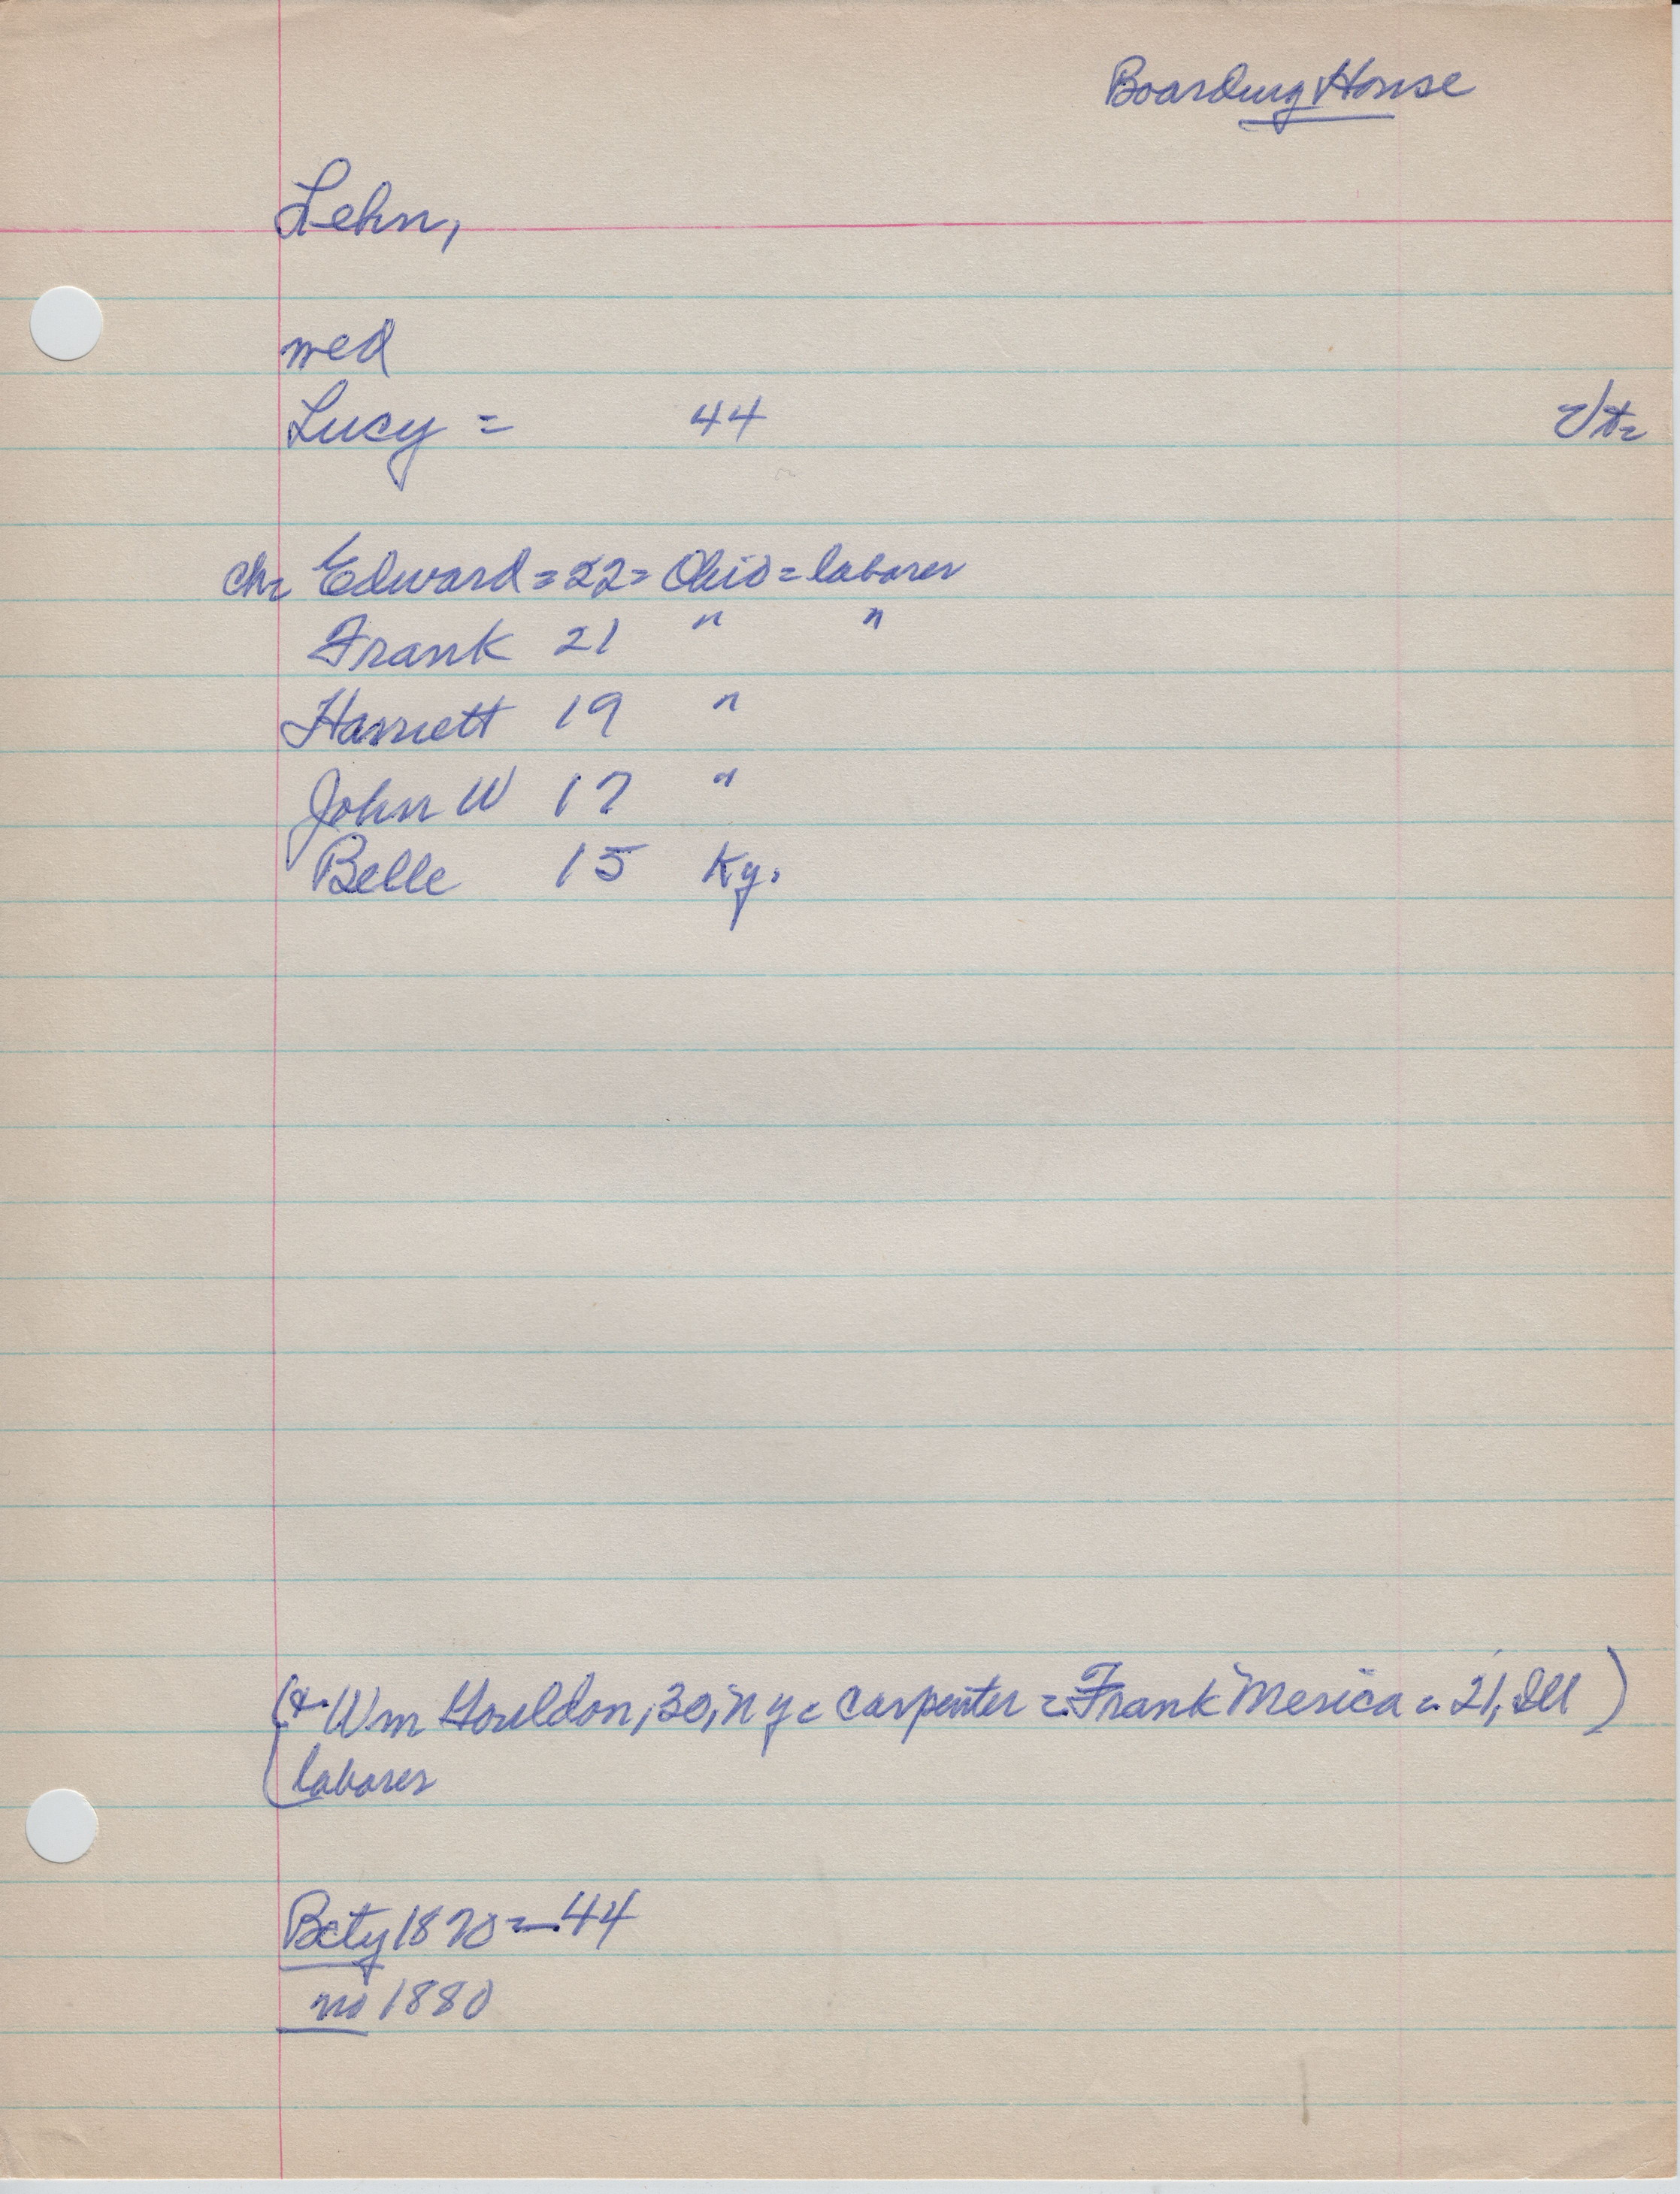 Boarding House
Lehn,
wed
Lucy = 44 Vt=
ch= Edward = 22 = Ohio = laborer
Frank 21 " "
Harriett 19 "
John W 17 "
Belle 15 Ky.
(+ Wm Gouldon, 30, N Y = carpenter = Frank Merica = 21, Ill)
laborer
Bcty 1870 = 44
no 1880